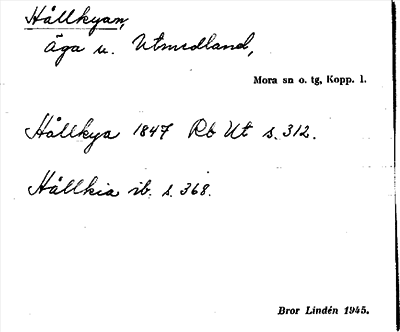 Hållkyan,
äga u. Utmedland,
Mora sn o. tg, Kopp. l.
Hållkya 1847 Rb Ut s. 312.
Hållkia ib. s. 368.
Bror Lindén 1945.